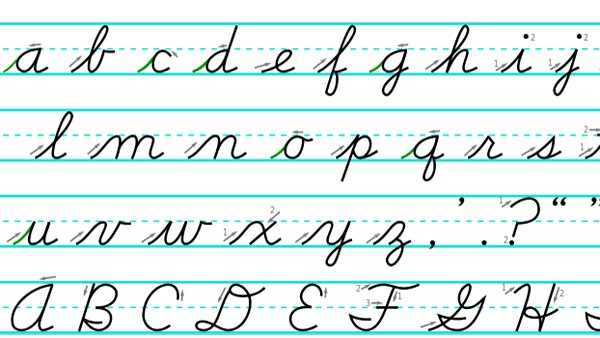 a b c d e f g h i j
l m n o p q r s
u v w x y z , ' . ? “ ”
A B C D E F G H